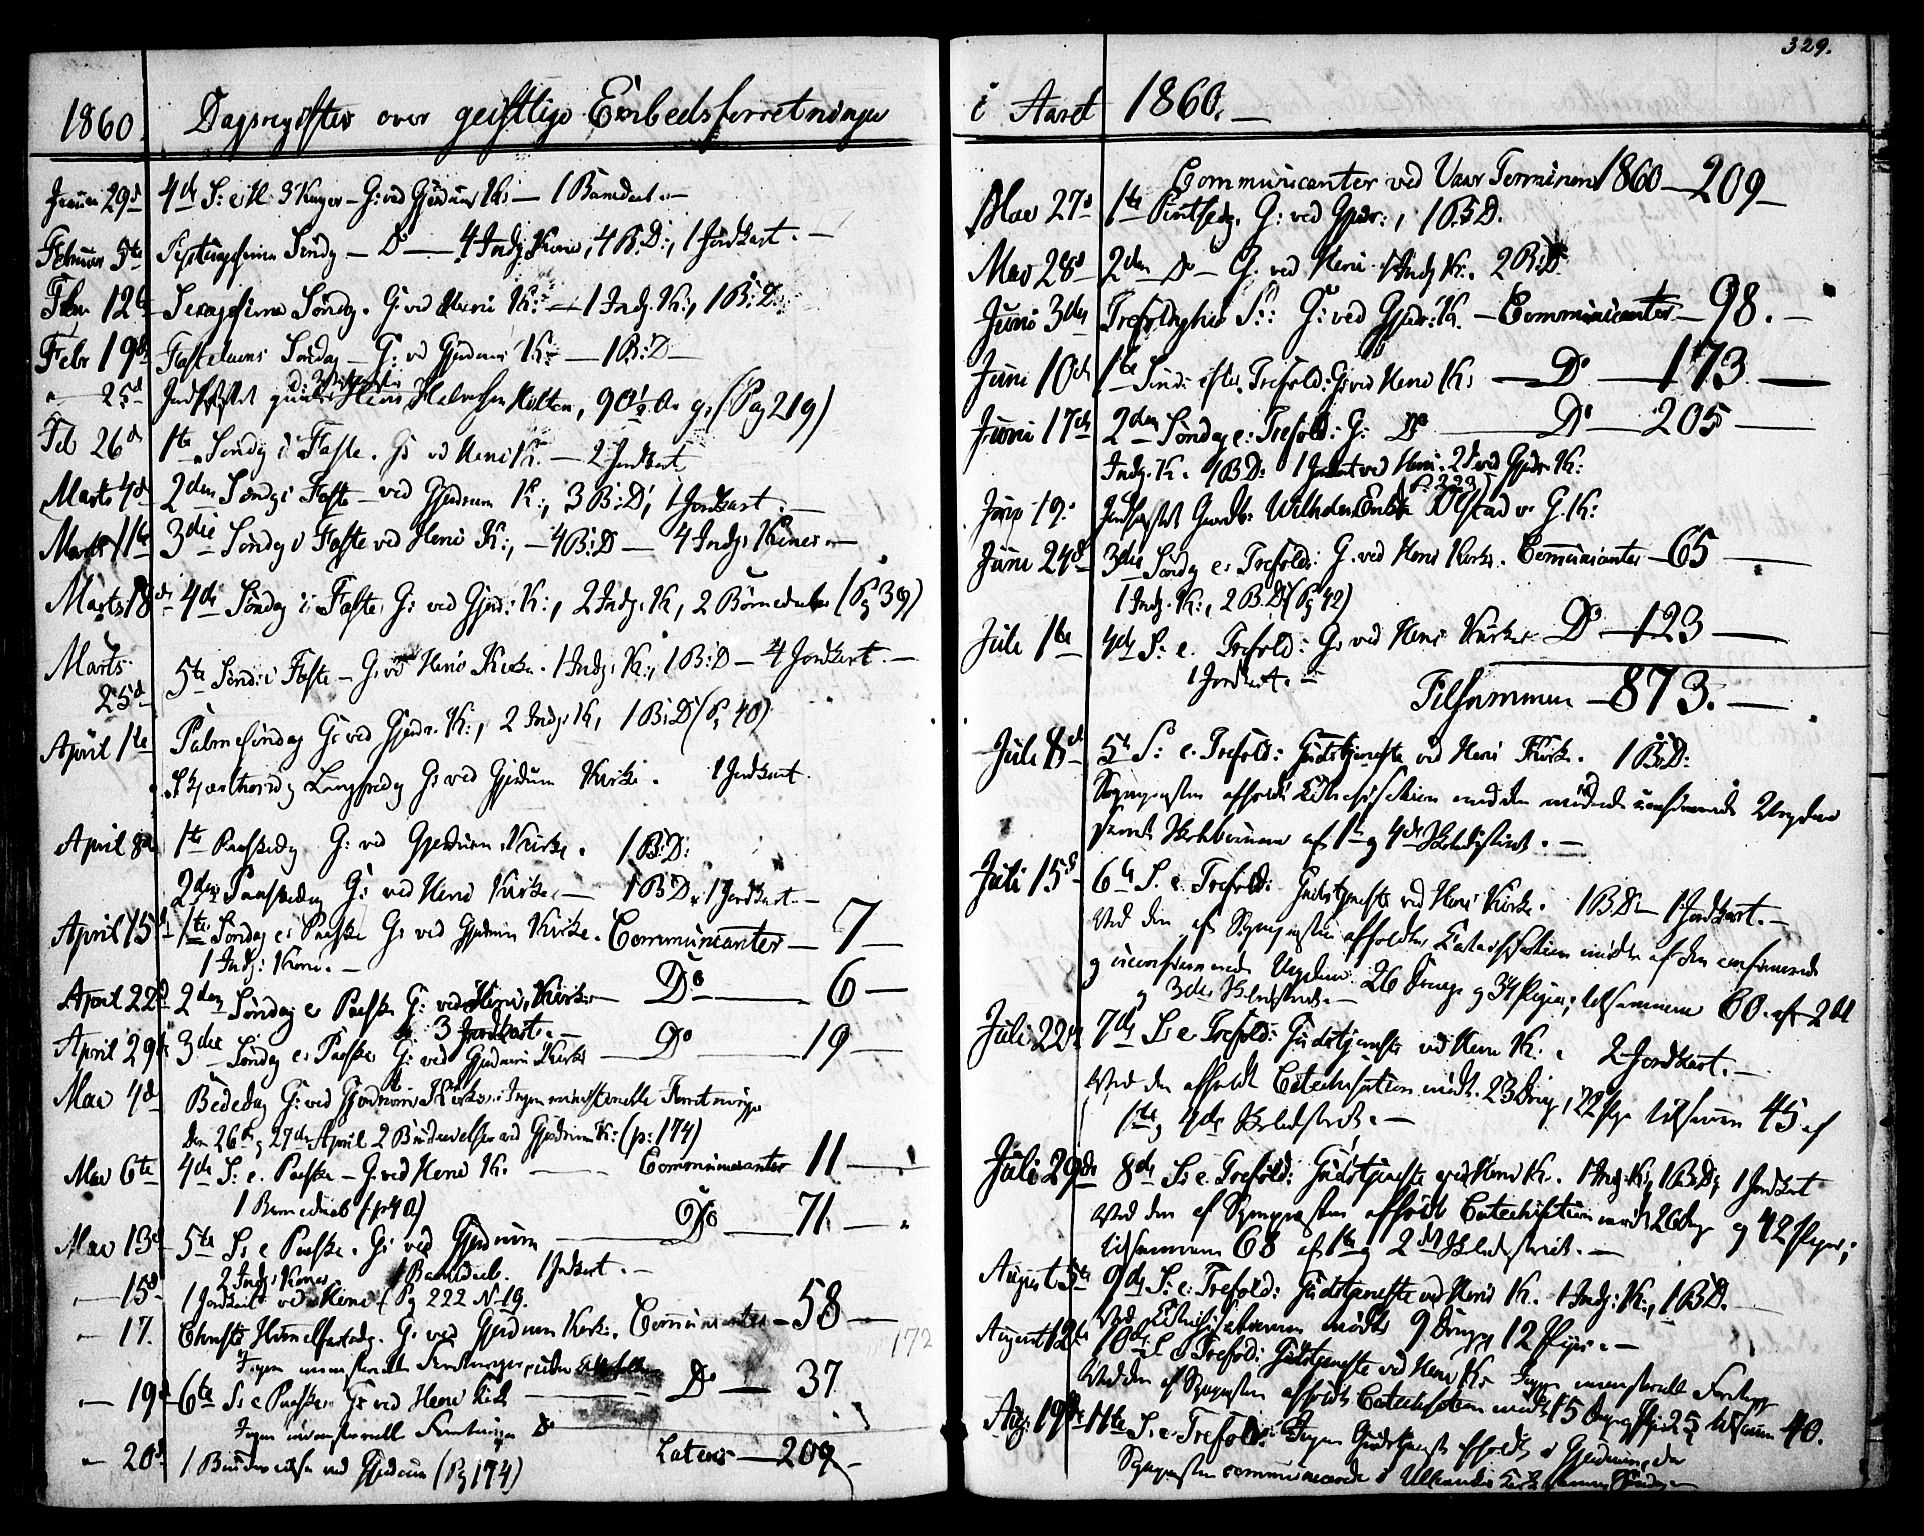 1860. Dagsregister over geistlige Embedsforretninger
Januar 29d 4de S: e: H: 3 Konger – G: ved Gjerdrum K: – 1 Barnedaab. –
Februar 5te Septuagesima Søndg – Do – 4 Indg: Koner, 4 B: D:, 1 Jordkast. –
Febr 12te Sexagesima Søndg. G: ved Heni K: – 1 Indg: K:, 1 B: D:
Febr 19de Fastelavns Søndag – G: vd Gjerdrum K: – 1 B: D –
" 25d Jordfæstet Hans Halvorsen Holten, 90 1/2 Aar g: (Pag 219)
Feb 26d 1te Søndg i Faste. G: vd Heni K: – 2 Jordkast
Marts 4d 2den Søndg i Faste – ved Gjerdrum K:, 3 B: D:, 1 Jordkast. –
Marts 11te 3die Søndg i Faste ved Heni K:, – 4 B: D – 4 Indg: Koner. –
Marts 18de 4de Søndag i Faste, G: ved Gjerd: K:, 2 Indg: K, 2 Børnedaab (Pg 39)
Marts 25d 5te Sønd: i Faste – G: vd Heni Kirke. 1 Indg: K:, 1 B: D – 4 Jordkast. –
April 1te Palmesøndag G: ved Gjerdr. K:, 2 Indg: K, 1 B: D (P. 40)
Skjærthorsdg Langfredg G: ved Gjerdrum Kirke. 1 Jordkast.
April 8d 1te Paaskedg G: ved Gjerdrum Kirke. 1 B: D:
2den Paaskedag G: ved Heni Kirke, – 1 B: D, 1 Jordkast. –
April 15d 1te Søndag e: Paaske G: ved Gjerdrum Kirke. Communicanter – 7 –
1 Indg: Kone. –
April 22d 2den Søndag e: Paaske G: ved Heni Kirke – Do – 6 –
3 Jordkast. –
April 29d 3die Søndag e: Paaske G: ved Gjerdrum Kirke – Do – 19 –
Mai 4d Bededag G: ved Gjerdrum Kirke. Ingen ministerielle Forretninger
Den 26d g 27de April 2 Brudevielser ved Gjerdrum K: (p: 174)
Mai 6te 4de S: e. Paaske – G: ved Heni K. – Communicanter 11 –
1 Barnedaab (p 40)
Mai 13d 5te S: e Paaske. G: ved Gjerdrum – Do – 71. –
2 Indg: Koner 1 Barnedaab. 1 Jordkast. –
– 15d 1 Jordkast ved Heni (Pg 222 N. 19.
– 17. Christi Himmelfartsdg. G: ved Gjerdrum Kirke. Communicanter – 58 –
172
Ingen ministerielle Forretninger
– 19d 6te S: e Paaske, G: ved Heni Kirke – Do – 37
Ingen ministerielle Forretninger Do
– 20d 1 Brudevielse ved Gjerdrum (Pg 174) Lateris – 209 –
329.
i Aaret 1860. –
Communicanter ved Vaar Terminen 1860 – 209 –
Mai 27d 1te Pintsedg. G: ved Gjerdr:, 1 B: D.
Mai 28d 2den Do – G: ved Heni 1 Indg K:. 2 B: D:
Juni 3die Trefoldigheds S:: G: ved Gjerdr: K. – Communicanter – 98. –
Juni 10de 1te Sønd: efter Trefold: G: ved Heni K: – Do – 173 –
Juni 17de 2den Søndag e: Trefold: G: Do – Do – 205 –
Indg. K. 1 B D: 1 Jordkast ved Heni. 2 Do ved Gjerdr. K:
(P. 223)
Juni 19. Jordfæstet Wilhelm Olstad v. G. K:
Juni 24d 3die Søndg e: Trefold: G. ved Heni Kirke. Communicanter – 65 –
1 Indg. K:, 2 B. D: (Pg 42)
Juli 1te 4de S: e. Trefold: G: ved Heni Kirke Do – 123 –
1 Jordkast. – Tilsammen – 873. –
Juli 8de 5te S: e. Trefold: Gudstjeneste ved Heni Kirke. 1 B: D:
Sognepresten afholdt Catechisation med den mødende confirmerede Ungdom
samt Skolebørnene af 1te g 4de Skoledistrict. –
Juli 15d 6te S. e. Trefold: Gudstjeneste ved Heni Kirke. 1 B. D: – 1 Jordkast. –
Ved den af Sognepresten afholdte Catechisation mødte af den confirmerede
g uconfirmerede Ungdom 26 Drenge g 34 Piger; tilsammen 60. af 2det
g 3die Skoledistrict. –
Juli 22de 7de S: e Trefold: Gudstjeneste ved Heni K:. 2 Jordkast. –
Ved den afholdte Catechisation mødte 23 Dreng, 22 Pige tilsammen 45 af
1te g 4de Skoledistrict. –
Juli 29de 8de S: e Trefold: Gudstjeneste ved Heni K. 1 Indg: K:, 1 B: D:, 1 Jordkast
Ved den af Sognepresten afholdte Catechisation mødte 26 Dreng g 42 Piger;
tilsammen 68 af 1te g 2det Skoledistrict. –
August 5te 9de S: e: Trefold: Gudstjeneste ved Heni K. 1 Indg: K:, 1 B. D. –
Ved Catechisationen mødte 9 Dreng g 12 Piger. –
August 12te 10de S e Trefold: Gudstjeneste ved Heni K: Ingen ministerielle Forretng
Ved den af Sognepresten afholdte Catechisation mødte 15 Dreng g Pig 25 tilsammen 40.
Aug: 19de 11te S. e Trefold: Ingen Gudstjeneste afholdt i Gjerdrum, da
Sognepresten communicerede i Ullensaker Kirke samme Søndag –